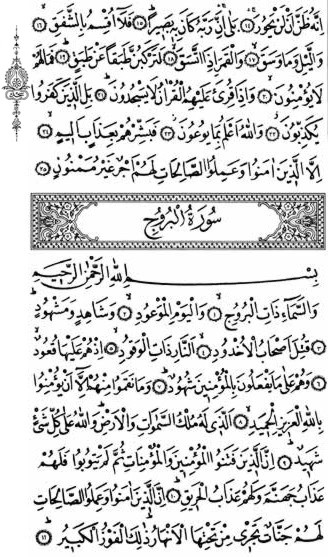 اِنَّهُ ظَنَّ اَنْ لَنْ يَحُورَۚ ﴿١٤﴾ بَلٰىۚ اِنَّ رَبَّهُ كَانَ بِهِ بَصِيراًۜ ﴿١٥﴾ فَلَٓا اُقْسِمُ بِالشَّفَقِۙ ﴿١٦﴾
وَالَّيْلِ وَمَا وَسَقَۙ ﴿١٧﴾ وَالْقَمَرِ اِذَا اتَّسَقَۙ ﴿١٨﴾ لَتَرْكَبُنَّ طَبَقاً عَنْ طَبَقٍۜ ﴿١٩﴾ فَمَا لَهُمْ
لَا يُؤْمِنُونَۙ ﴿٢٠﴾ وَاِذَا قُرِئَ عَلَيْهِمُ الْقُرْاٰنُ لَا يَسْجُدُونَۜ ﴿٢١﴾ بَلِ الَّذِينَ كَفَرُوا
يُكَذِّبُونَۘ ﴿٢٢﴾ وَاللّٰهُ اَعْلَمُ بِمَا يُوعُونَۘ ﴿٢٣﴾ فَبَشِّرْهُمْ بِعَذَابٍ اَلِيمٍۙ ﴿٢٤﴾
اِلَّا الَّذِينَ اٰمَنُوا وَعَمِلُوا الصَّالِحَاتِ لَهُمْ اَجْرٌ غَيْرُ مَمْنُونٍ ﴿٢٥﴾
سُورَةُ الْبُرُوجِ
بِسْمِ اللّٰهِ الرَّحْمٰنِ الرَّحِيمِ
وَالسَّمَٓاءِ ذَاتِ الْبُرُوجِۙ ﴿١﴾ وَالْيَوْمِ الْمَوْعُودِۙ ﴿٢﴾ وَشَاهِدٍ وَمَشْهُودٍۜ
﴿٣﴾ قُتِلَ اَصْحَابُ الْاُخْدُودِۙ ﴿٤﴾ اَلنَّارِ ذَاتِ الْوَقُودِۙ ﴿٥﴾ اِذْ هُمْ عَلَيْهَا قُعُودٌۙ
﴿٦﴾ وَهُمْ عَلٰى مَا يَفْعَلُونَ بِالْمُؤْمِنِينَ شُهُودٌۜ ﴿٧﴾ وَمَا نَقَمُوا مِنْهُمْ اِلَّٓا اَنْ يُؤْمِنُوا
بِاللّٰهِ الْعَزِيزِ الْحَمِيدِۙ ﴿٨﴾ اَلَّذِي لَهُ مُلْكُ السَّمٰوَاتِ وَالْاَرْضِۜ وَاللّٰهُ عَلٰى كُلِّ شَيْءٍ
شَهِيدٌۜ ﴿٩﴾ اِنَّ الَّذِينَ فَتَنُوا الْمُؤْمِنِينَ وَالْمُؤْمِنَاتِ ثُمَّ لَمْ يَتُوبُوا فَلَهُمْ
عَذَابُ جَهَنَّمَ وَلَهُمْ عَذَابُ الْحَرِيقِۜ ﴿١٠﴾ اِنَّ الَّذِينَ اٰمَنُوا وَعَمِلُوا الصَّالِحَاتِ
لَهُمْ جَنَّاتٌ تَجْرِي مِنْ تَحْتِهَا الْاَنْهَارُۜ ذٰلِكَ الْفَوْزُ الْكَبِيرُۜ ﴿١١﴾